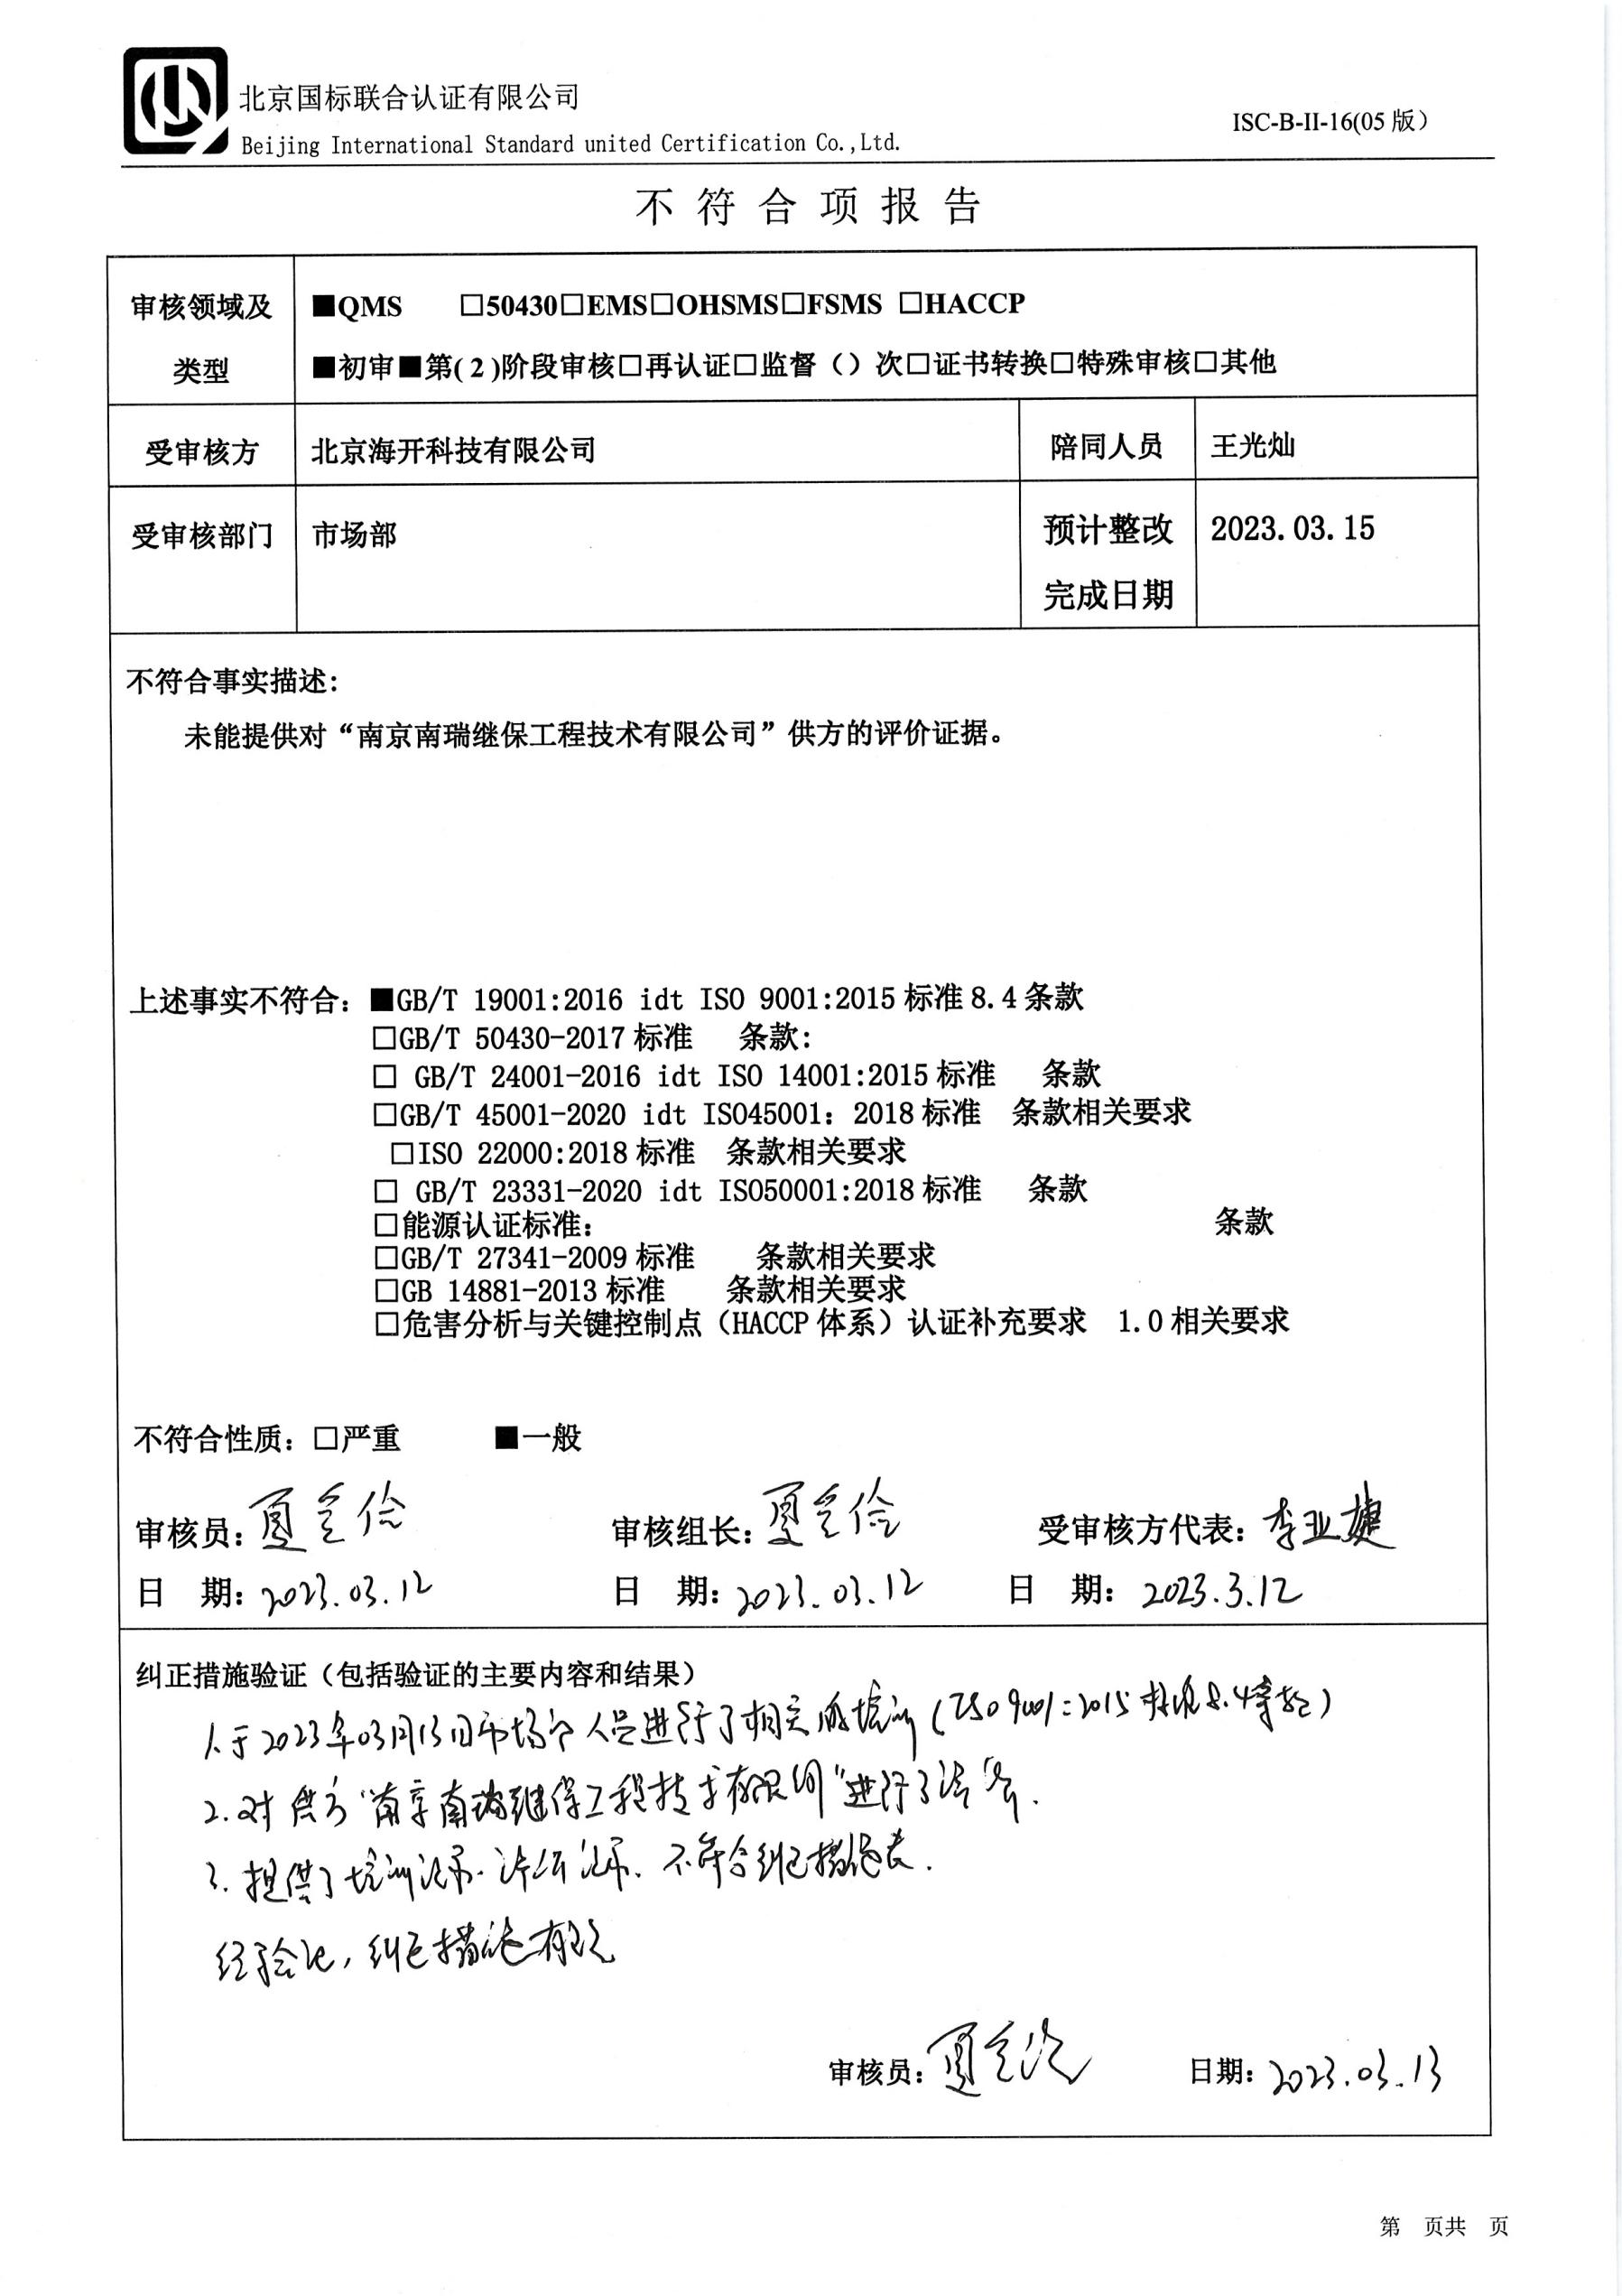 北京国标联合认证有限公司
Beijing International Standard united Certification Co.,Ltd.
ISC-B-II-16(05 版)
不符合项报告
审核领域及类型
■QMS □50430□EMS□OHSMS□FSMS □HACCP
■初审■第(2)阶段审核□再认证□监督（）次□证书转换□特殊审核□其他
受审核方 北京海开科技有限公司 陪同人员 王光灿
受审核部门 市场部 预计整改完成日期 2023.03.15
不符合事实描述:
未能提供对“南京南瑞继保工程技术有限公司”供方的评价证据。
上述事实不符合: ■GB/T 19001:2016 idt ISO 9001:2015 标准 8.4 条款
□GB/T 50430-2017 标准 条款:
□ GB/T 24001-2016 idt ISO 14001:2015 标准 条款
□GB/T 45001-2020 idt ISO45001: 2018 标准 条款相关要求
□ISO 22000:2018 标准 条款相关要求
□ GB/T 23331-2020 idt ISO50001:2018 标准 条款
□能源认证标准: 条款
□GB/T 27341-2009 标准 条款相关要求
□GB 14881-2013 标准 条款相关要求
□危害分析与关键控制点（HACCP 体系）认证补充要求 1.0 相关要求
不符合性质: □严重 ■一般
审核员: 审核组长: 受审核方代表: 李亚捷
日 期: 2023.03.12 日 期: 2023.03.12 日 期: 2023.3.12
纠正措施验证（包括验证的主要内容和结果）
1.于2023年03月13日市场部人员进行了相关的培训(ISO9001:2015标准8.4条款)
2.对供方“南京南瑞继保工程技术有限公司”进行了评价.
3.提供了培训记录.评价记录.不符合纠正措施表.
经验证,纠正措施有效
审核员: 日期: 2023.03.13
第 页共 页